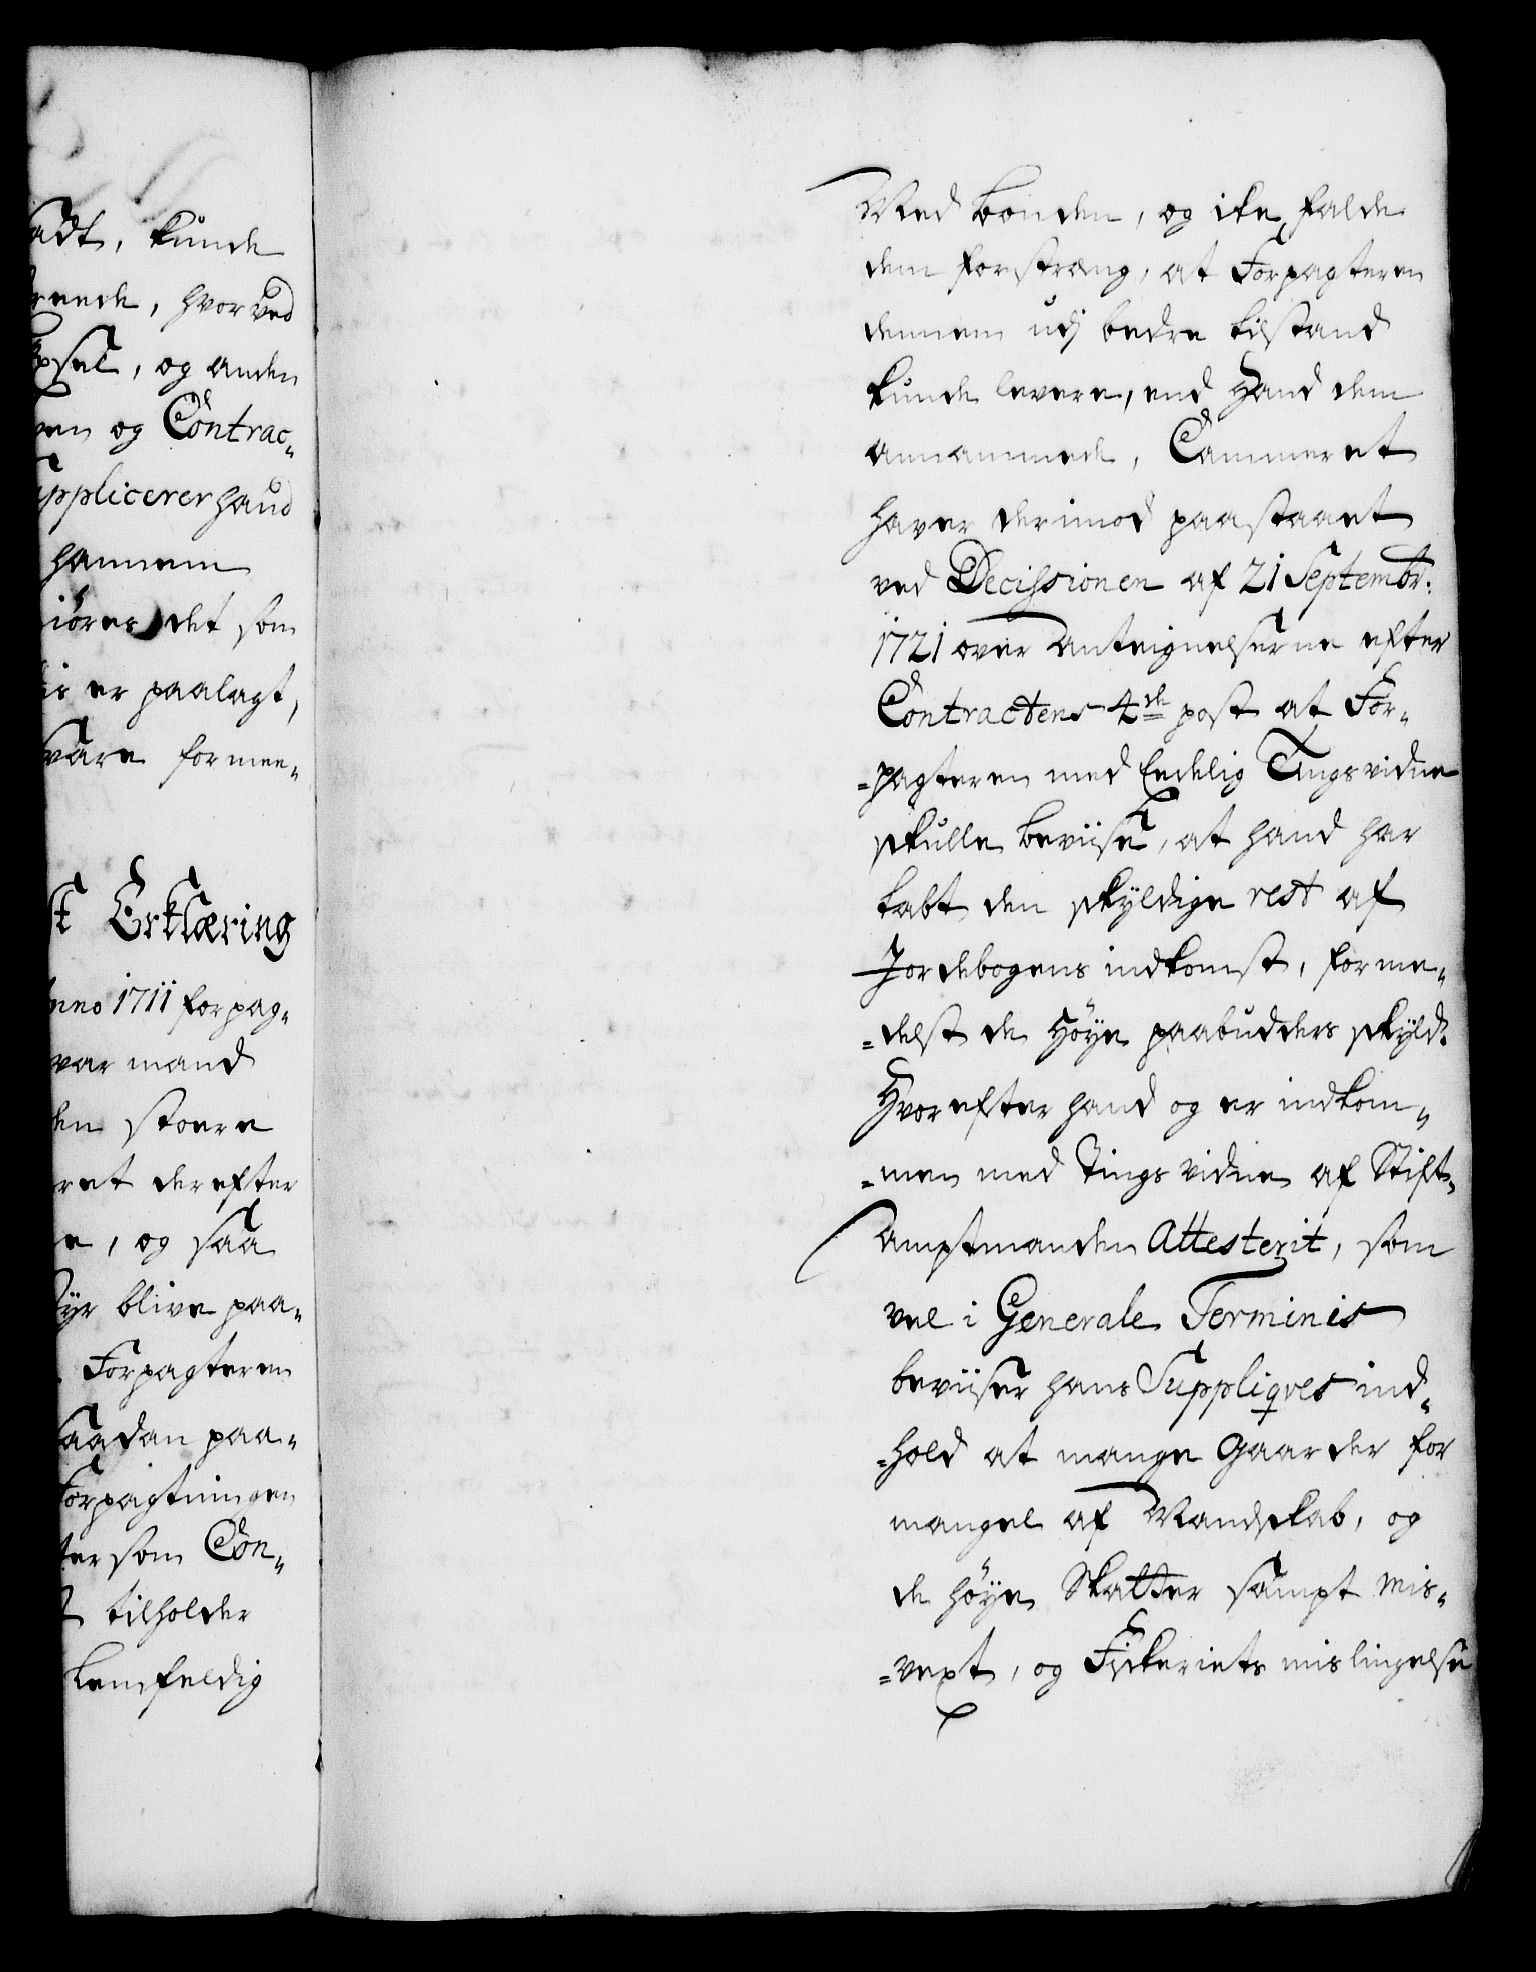 adt, kunde
reede, hvorved
psel, og anden
en og Contrac-
upplicerer hand
hannem
iøres det som
is er paalagt,
svare formee-
st Erklæring
nno 1711 forpag-
var mand
den stoere
ret derefter
e, og saa
yr blive paa-
Forpagteren
saadan paa-
Forpagtningen
ter som Con-
tilholder
lemfeldig
Med bonden, og ike falde
dem forstræng, at Forpagteren
dennem udj bedre tilstand
kunde levere, end Hand dem
annammede, Cammeret
haver derimod paastaaet
ved Decissionen af 21 Septembr:
1721 over Anteignelserne efter
Contractens 4de post at For-
=pagteren med Eedelig Tingsvidne
skulle beviise, at hand har
tabt den skyldige rest af
Jordebogens indkomst, forme-
=delst de Høye paabudders skyld.
Hvorefter hand og er indkom-
=men med Tings vidne af Stift-
Amptmanden Attesterit, som
vel i Generale Terminis
beviiser hans Suppliqves ind-
=hold at mange Gaarder for
mangel af Mandskab, og
de høye Skatter sampt mis-
=vext, og Fiskeriets mislingelse